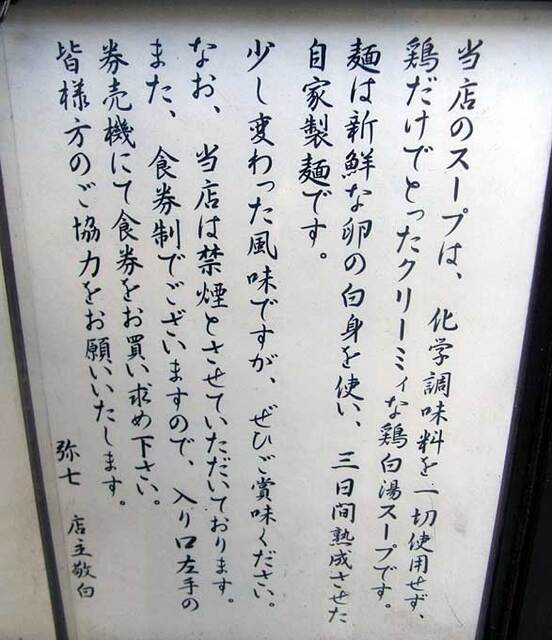 当店のスープは、化学調味料を一切使用せず、
鶏だけでとったクリーミィな鶏白湯スープです。
麺は新鮮な卵の白身を使い、三日間熟成させた
自家製麺です。
少し変わった風味ですが、ぜひご賞味ください。
なお、当店は禁煙とさせていただいております。
また、食券制でございますので、入り口左手の
券売機にて食券をお買い求め下さい。
皆様方のご協力をお願いいたします。
弥七 店主敬白